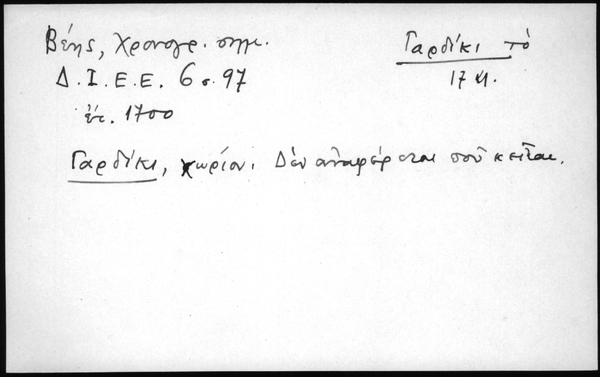 Βέης, Χρονογρ. σημ.
Δ.Ι.Ε.Ε. 6 σ. 97
ἔτ. 1700
Γαρδίκι τὸ
17 αι.
Γαρδίκι, χωρίον. Δὲν ἀναφέρεται ποῦ κεῖται.